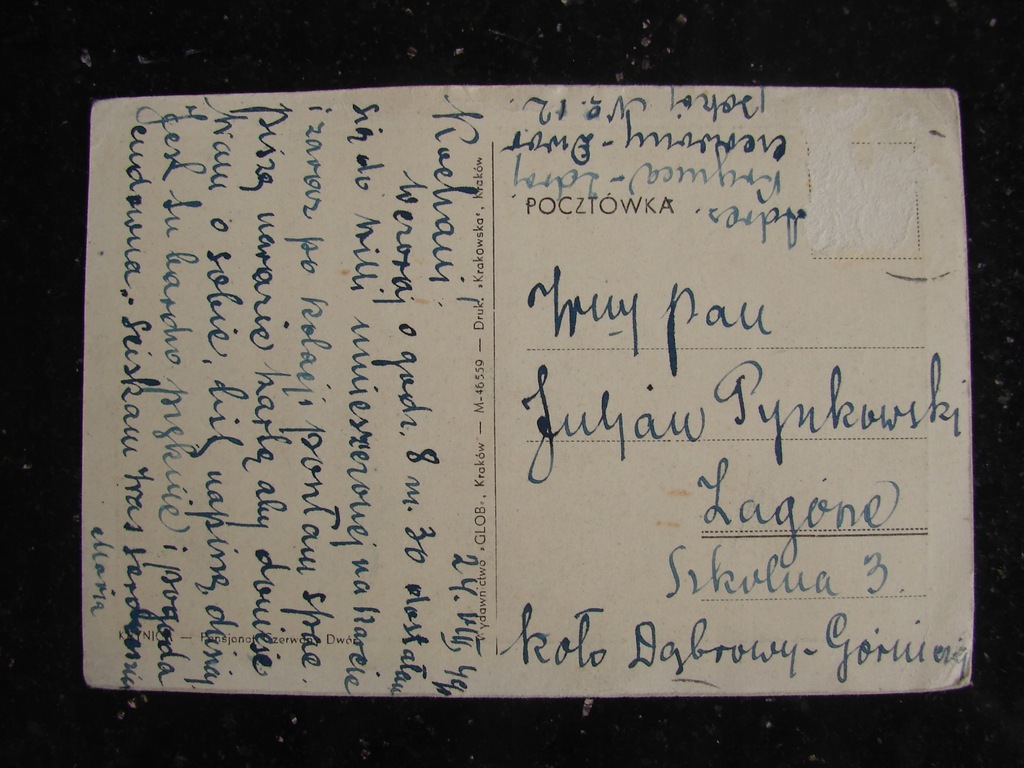 24. VIII 49
Kochani!
Wczoraj o godz. 8 m. 30 dostałam
się do willi umieszczonej na karcie
i zaraz po kolacji poszłam spać.
Piszę narazie kartę aby donieść
Wam o sobie, list napiszę dziś,
Jest tu bardzo pięknie i pogoda
cudowna. Ściskam Was serdecznie
Maria
KRYNICA — Pensjonat „Czerwony Dwór”
Wydawnictwo »GLOB«, Kraków — M-46559 — Druk. »Krakowska«, Kraków
POCZTÓWKA
Adres.
Krynica-Zdrój
Czerwony-Dwór
pokój No. 12.
Wny Pan
Juljan Pynkowski
Zagórze
Szkolna 3.
koło Dąbrowy-Górniczej